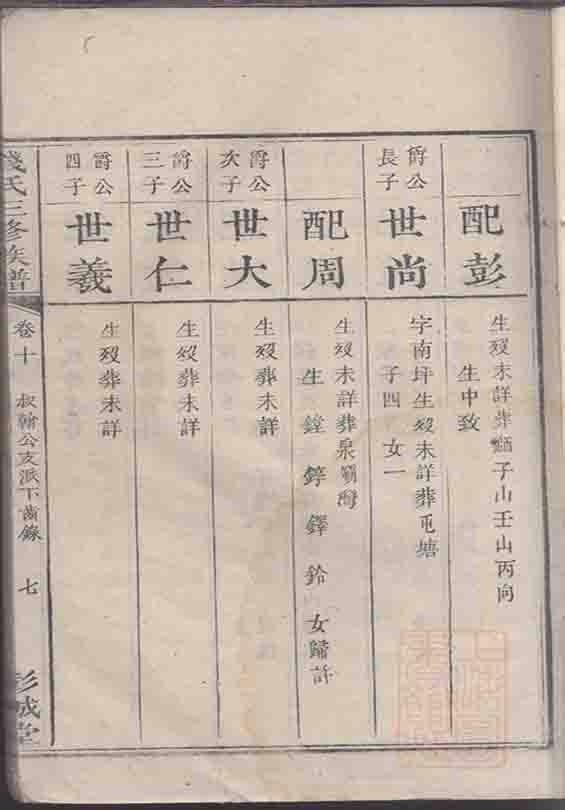 配彭
生歿未詳葬 子山壬山丙向
生中致
爵公
長子
世尚
字南坪生歿未詳葬屯塘
子四 女一
配周
生歿未詳葬泉 灣
生鏜錞鐸鈴 女歸許
爵公
次子
世大
生歿葬未詳
爵公
三子
世仁
生歿葬未詳
爵公
四子
世義
生歿葬未詳
錢氏三修族譜
卷十
叔翰公支派下齒錄
七
彭城堂